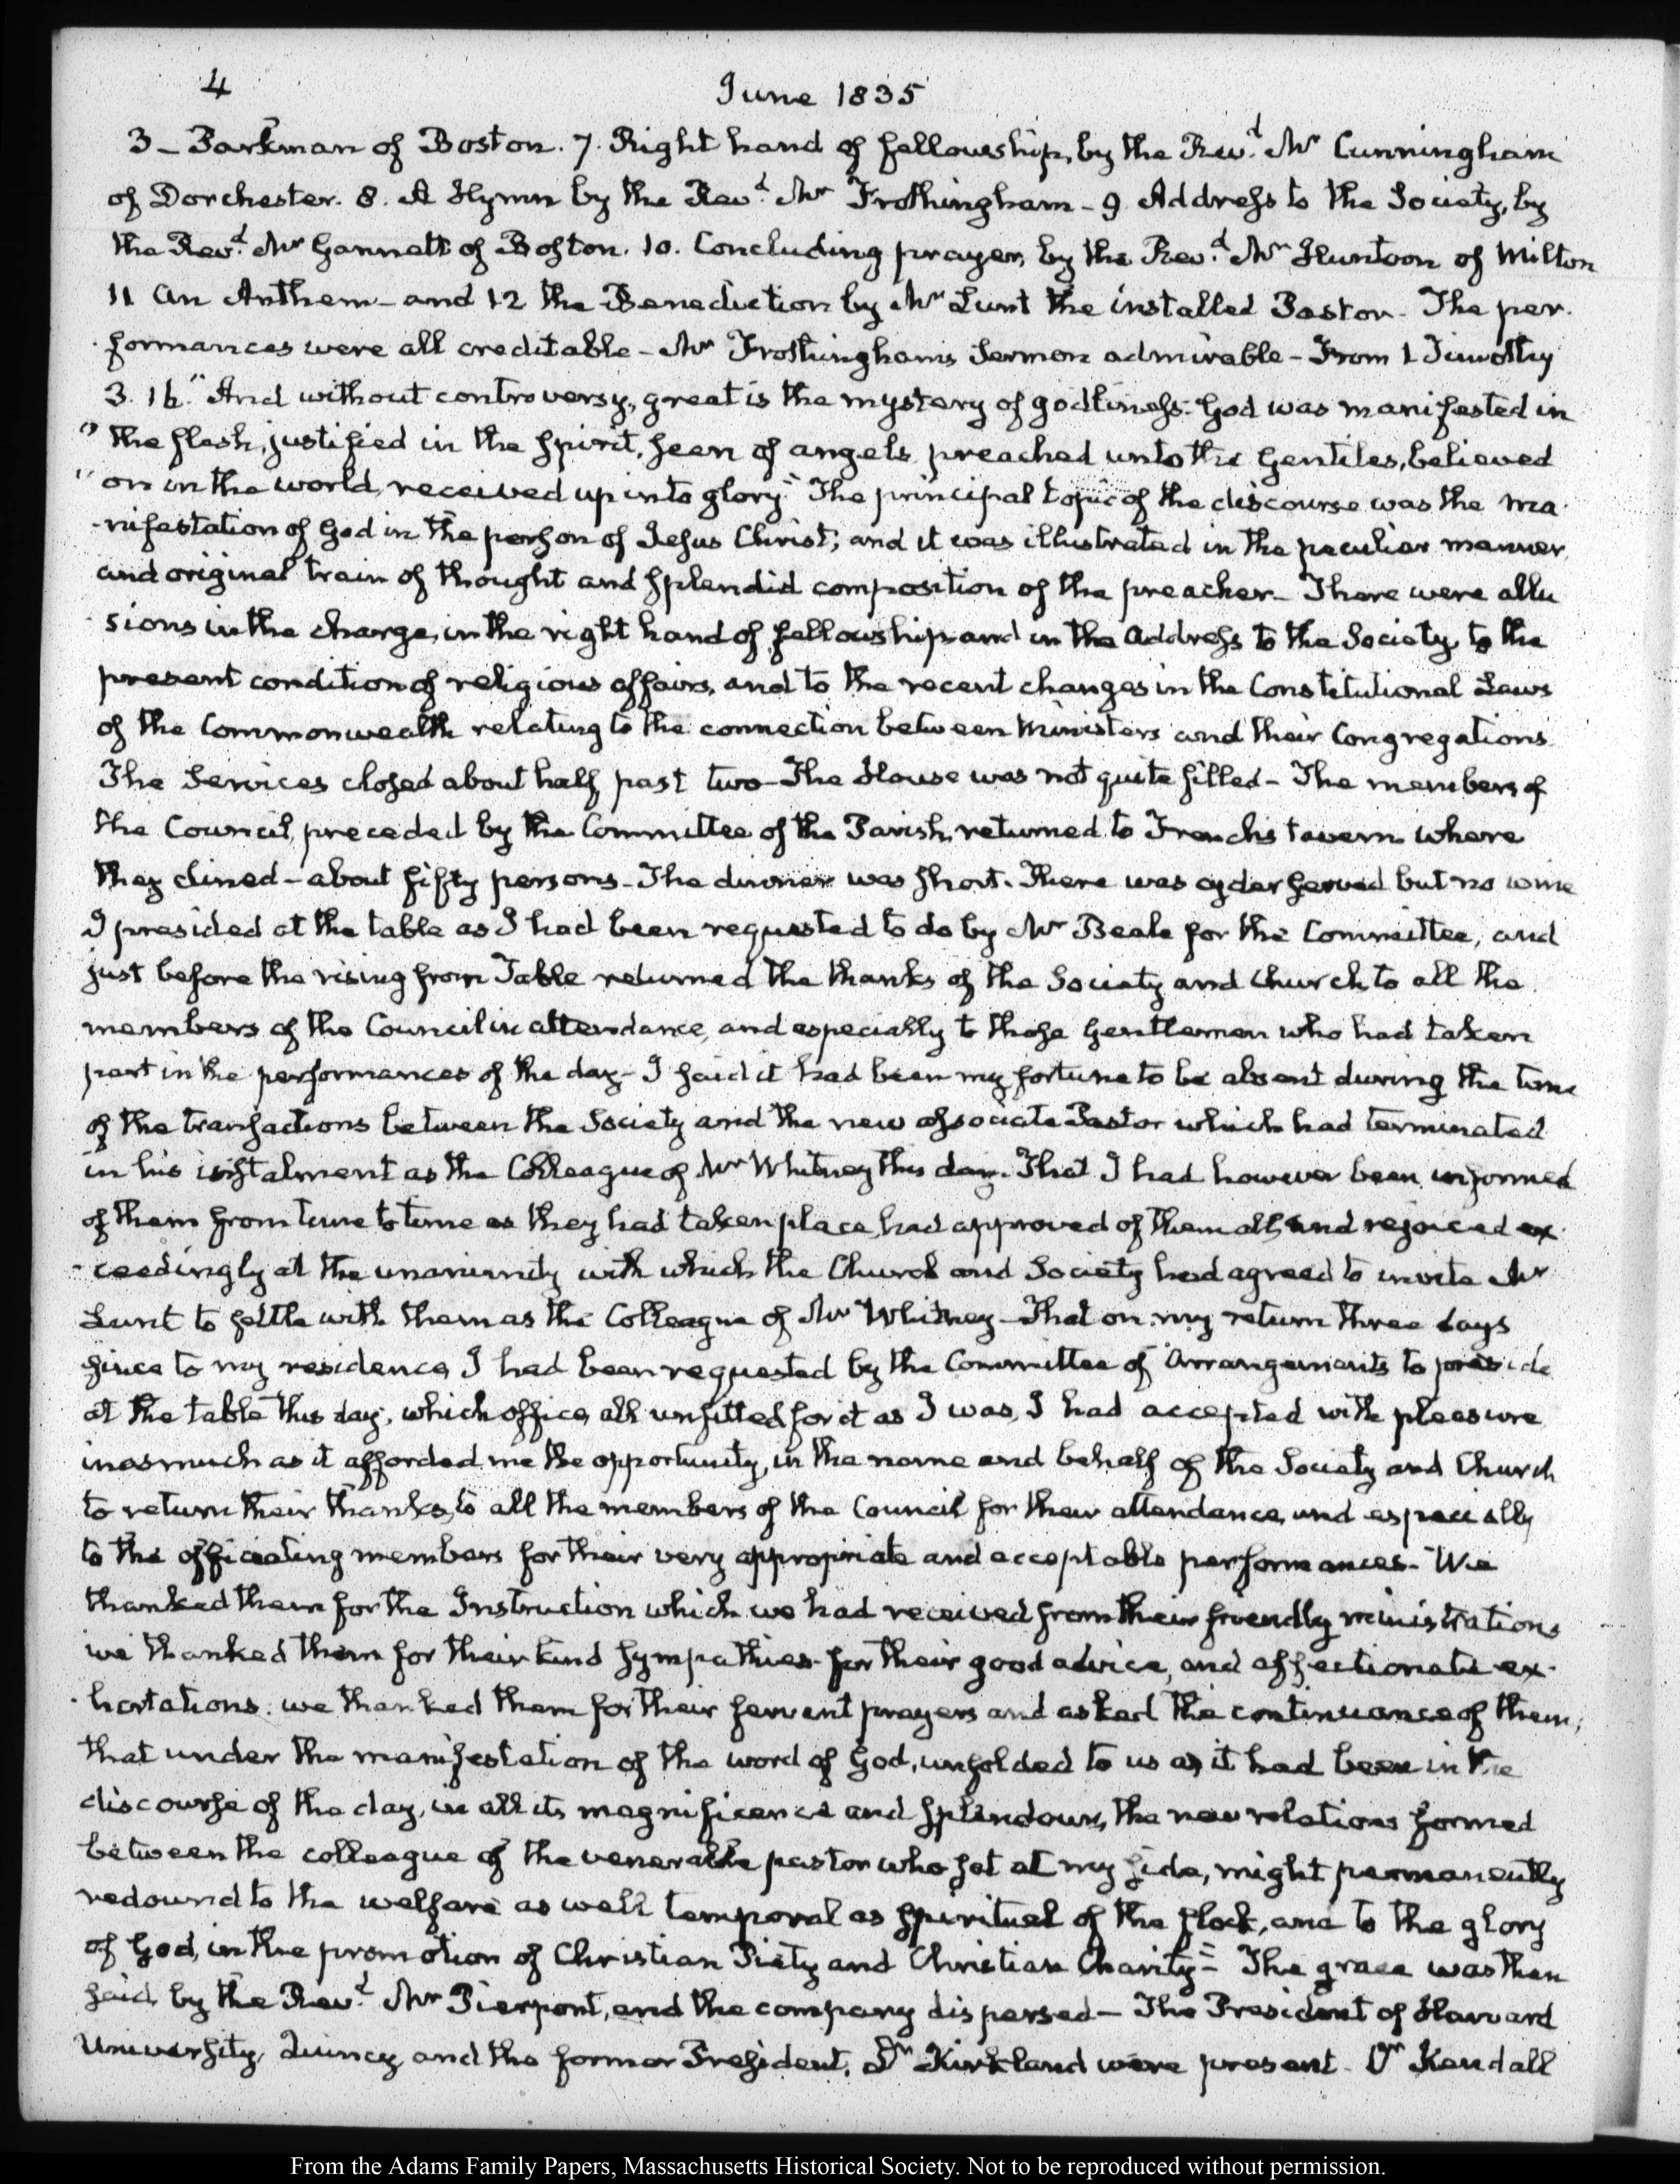 4 June 1835
3 – Parkman of Boston. 7. Right hand of fellowship, by the Rev.d Mr Cunningham
of Dorchester. 8. A Hymn by the Rev.d Mr Frothingham – 9 Address to the Society, by
the Rev.d Mr Gannett of Boston. 10. Concluding prayer, by the Rev.d Mr Huntoon of Milton
11 An Anthem – and 12 the Benediction by Mr Lunt the installed Pastor – The per-
formances were all creditable – Mr Frothinghams Sermon admirable – From 1 Timothy
3. 16. "And without controversy, great is the mystery of godliness. God was manifested in
" the flesh, justified in the Spirit, seen of angels preached unto the Gentiles, believed
" on in the world, received up into glory" The principal topic of the discourse was the ma-
-nifestation of God in the person of Jesus Christ; and it was illustrated in the peculiar manner
and original train of thought and splendid composition of the preacher – There were allu
sions in the charge, in the right hand of fellowship and in the Address to the Society, to the
present condition of religious affairs, and to the recent changes in the Constitutional Laws
of the Commonwealth relating to the connection between Ministers and their Congregations
The Services closed about half past two – The House was not quite filled – The members of
the Council, preceded by the Committee of the Parish, returned to Frenchs tavern where
they dined – about fifty persons – The dinner was short. There was cyder served but no wine
I presided at the table as I had been requested to do by Mr Beale for the Committee, and
just before the rising from Table returned the thanks of the Society and Church to all the
members of the Council in attendance, and especially to those Gentlemen who had taken
part in the performances of the day – I said it had been my fortune to be absent during the time
of the transactions between the Society and the new associate Pastor which had terminated
in his instalment as the Colleague of Mr Whitney this day. That I had however been informed
of them from time to time as they had taken place, had approved of them all, and rejoiced ex-
-ceedingly at the unanimity with which the Church and Society had agreed to invite Mr
Lunt to settle with them as the Colleague of Mr Whitney – That on my return three days
since to my residence, I had been requested by the Committee of Arrangements to preside
at the table this day, which office, all unfitted for it as I was, I had accepted with pleasure
inasmuch as it afforded me the opportunity, in the name and behalf of the Society and Church
to return their thanks, to all the members of the Council for their attendance, and especially
to the officiating members for their very appropriate and acceptable performances – We
thanked them for the Instruction which we had received from their friendly ministrations
we thanked them for their kind sympathies – for their good advice, and affectionate ex-
-hortations: we thanked them for their fervent prayers and asked the continuance of them;
that under the manifestation of the word of God, unfolded to us as it had been in the
discourse of the day, in all its magnificence and splendour, the new relations formed
between the colleague of the venerable pastor who sat at my side, might permanently
redound to the welfare as well temporal as spiritual of the flock, and to the glory
of God, in the promotion of Christian Piety and Christian Charity – The grace was then
said by the Rev.d Mr Pierpont, and the company dispersed – The President of Harvard
University, Quincy, and the former President, Dr Kirkland were present – Dr Kendall
From the Adams Family Papers, Massachusetts Historical Society. Not to be reproduced without permission.